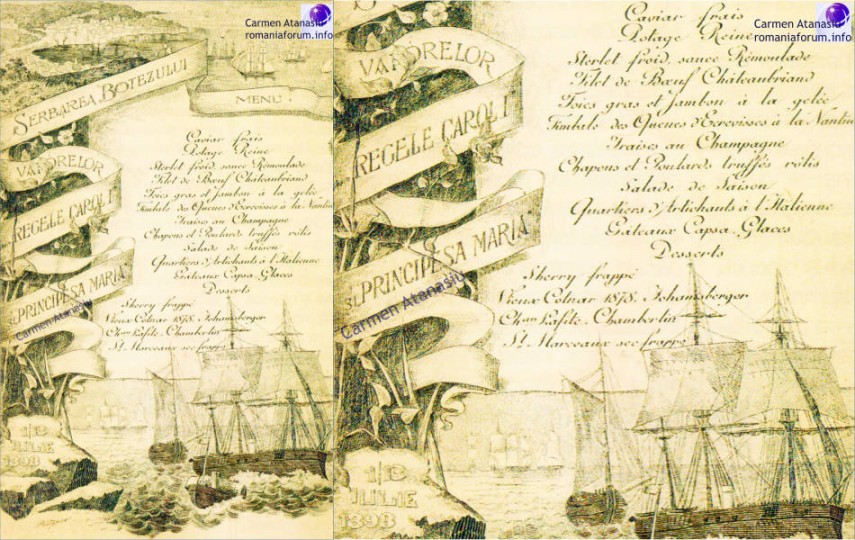 Carmen Atanasiu
romaniaforum.info
SERBAREA BOTEZULUI
MENU
VAPORELOR
REGELE CAROL I
SI PRINCIPESA MARIA
Caviar frais
Potage Reine
Sterlet froid, sauce Rémoulade
Filet de Bœuf Châteaubriand
Foies gras et Jambon à la gelée
Timbals des Queues d'Ecrevisses à la Nantua
Fraises au Champagne
Chapons et Poulards truffés rôtis
Salade de Saison
Quartiers d'Artichauts à l'Italienne
Gâteaux Capsa, Glaces
Desserts
Sherry frappé
Vieux Cotnar 1878, Johannsberger
Chau Lafite, Chambertin
St Marceaux sec frappé
Carmen Atanasiu
1/13
IULIE
1898
Carmen Atanasiu
romaniaforum.info
VAPORELOR
REGELE CAROL I
SI PRINCIPESA MARIA
Caviar frais
Potage Reine
Sterlet froid, sauce Rémoulade
Filet de Bœuf Châteaubriand
Foies gras et Jambon à la gelée
Timbals des Queues d'Ecrevisses à la Nantua
Fraises au Champagne
Chapons et Poulards truffés rôtis
Salade de Saison
Quartiers d'Artichauts à l'Italienne
Gâteaux Capsa, Glaces
Desserts
Sherry frappé
Vieux Cotnar 1878, Johannsberger
Chau Lafite, Chambertin
St Marceaux sec frappé
Carmen Atanasiu
1/13
IULIE
1898